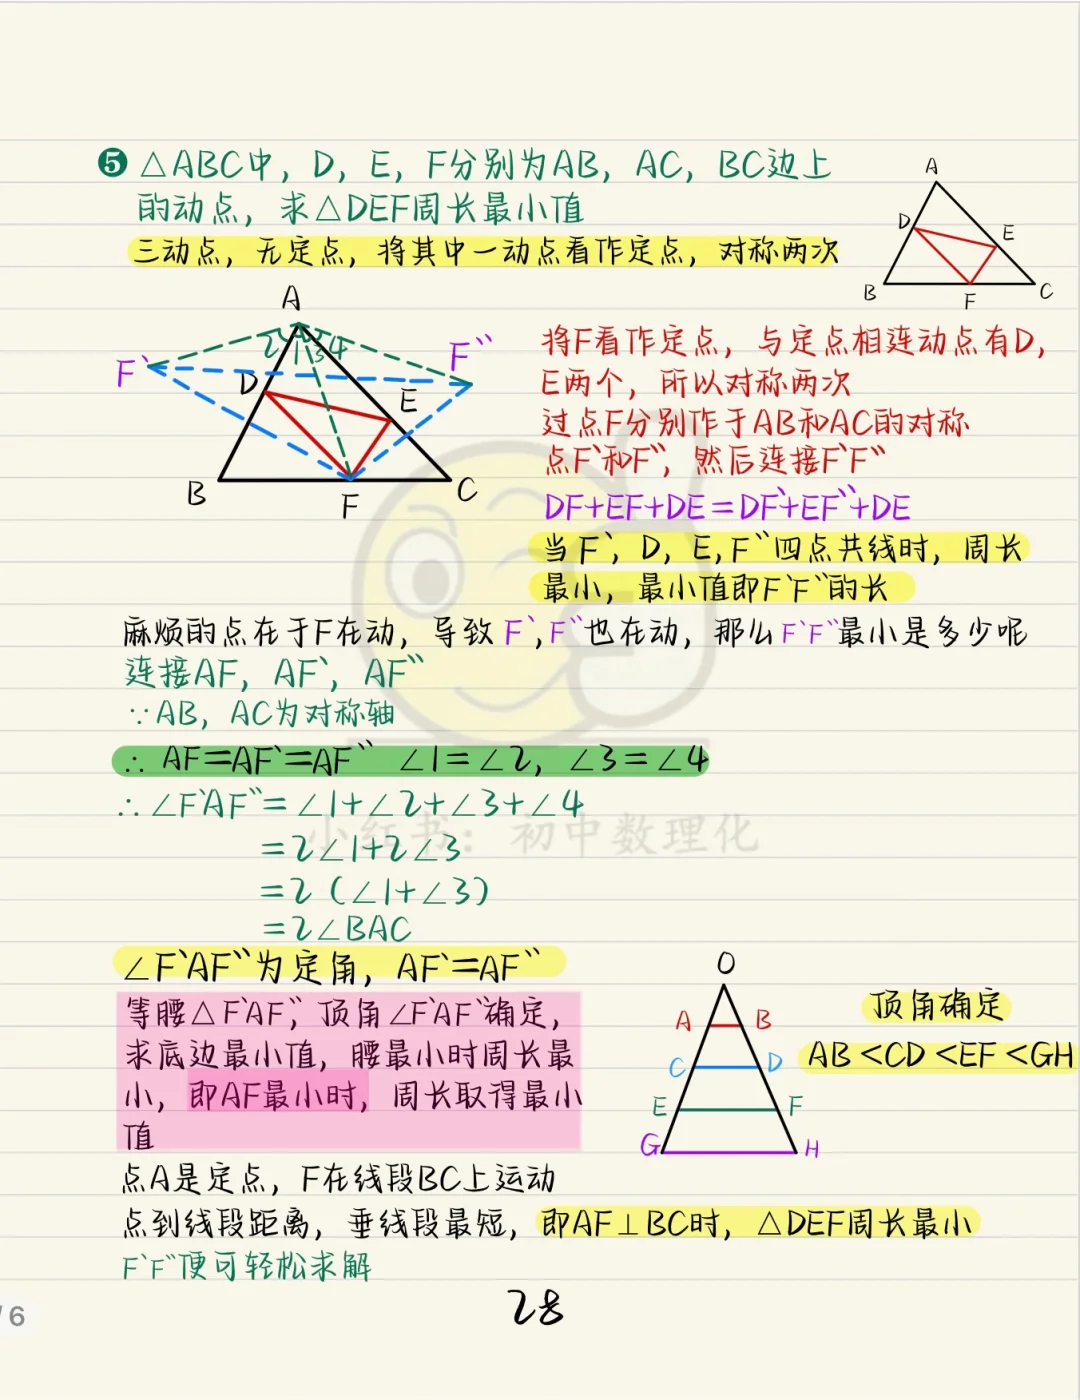 ❺ △ABC中，D，E，F分别为AB，AC，BC边上
的动点，求△DEF周长最小值
三动点，无定点，将其中一动点看作定点，对称两次
A
D
E
B
F
C
A
2 1 3 4
F`
F``
D
E
B
F
C
将F看作定点，与定点相连动点有D，
E两个，所以对称两次
过点F分别作于AB和AC的对称
点F`和F``，然后连接F`F``
DF+EF+DE=DF`+EF``+DE
当F`，D，E，F``四点共线时，周长
最小，最小值即F`F``的长
麻烦的点在于F在动，导致F`,F``也在动，那么F`F``最小是多少呢
连接AF，AF`，AF``
∵AB，AC为对称轴
∴ AF=AF`=AF`` ∠1=∠2，∠3=∠4
∴∠F`AF``=∠1+∠2+∠3+∠4
=2∠1+2∠3
=2（∠1+∠3）
=2∠BAC
小红书：初中数理化
∠F`AF``为定角，AF`=AF``
等腰△F`AF``，顶角∠F`AF``确定，
求底边最小值，腰最小时周长最
小，即AF最小时，周长取得最小
值
O
A B
C D
E F
G H
顶角确定
AB<CD<EF<GH
点A是定点，F在线段BC上运动
点到线段距离，垂线段最短，即AF⊥BC时，△DEF周长最小
F`F``便可轻松求解
28
/6